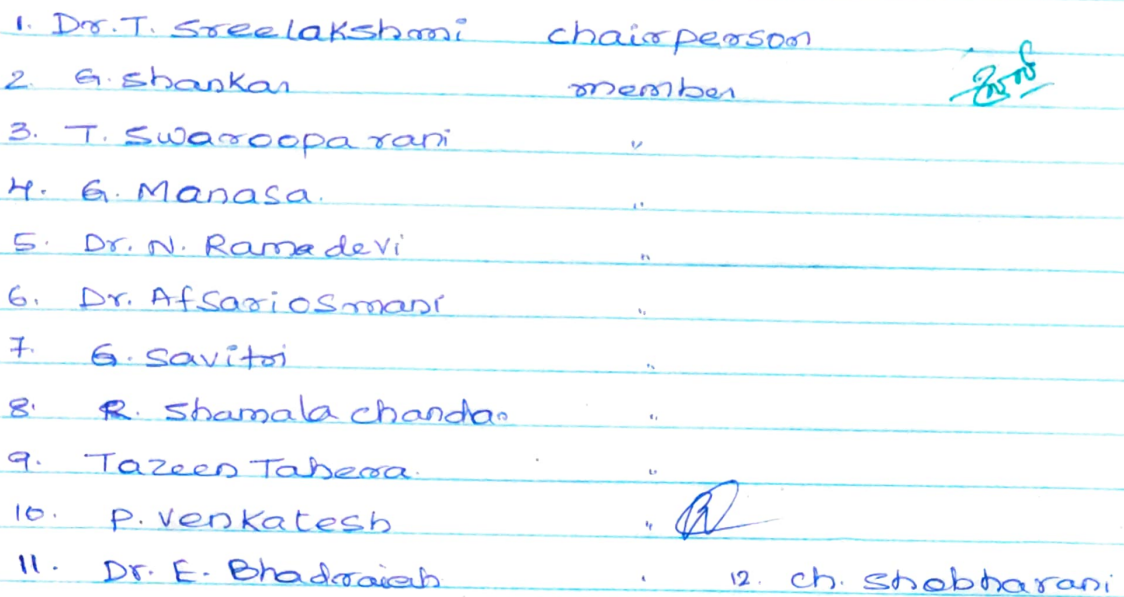 1. Dr. T. Sreelakshmi chairperson
2. G. Shankar member
3. T. Swaroopa rani "
4. G. Manasa. "
5. Dr. N. Ramadevi "
6. Dr. Afsariosmani "
7. G. Savitri "
8. R. Shamala chandar "
9. Tazeen Tabera. "
10. P. Venkatesh "
11. Dr. E. Bhadraiah " 12. Ch. Shobharani